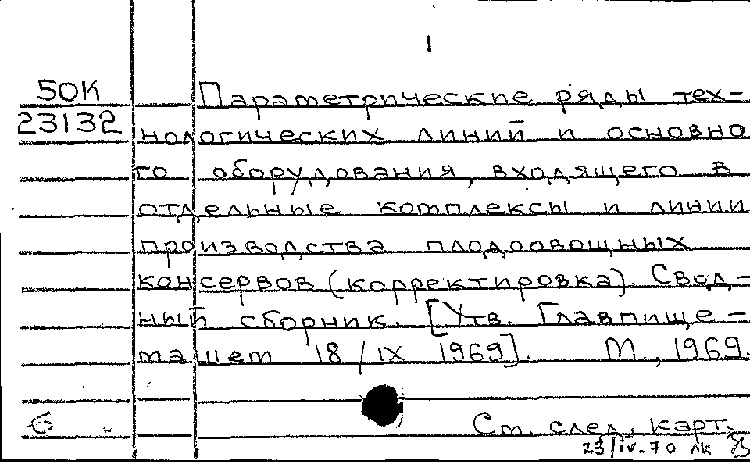 1
50К Параметрические ряды тех-
23132 нологических линий и основно
го оборудования, входящего в
отдельные комплексы и линии
производства плодоовощных
консервов (корректировка). Свод-
ный сборник. [Утв. Главпище-
машем 18/IX 1969]. М., 1969.
б См. след. карт.
23/IV-70 лк